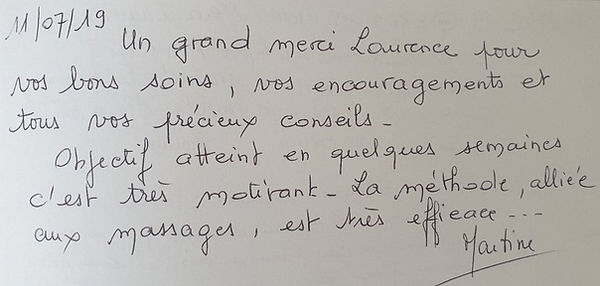 11/07/19
Un grand merci Laurence pour
vos bons soins, vos encouragements et
tous vos précieux conseils -
Objectif atteint en quelques semaines
c'est très motivant - La méthode, alliée
aux massages, est très efficace ---
Martine